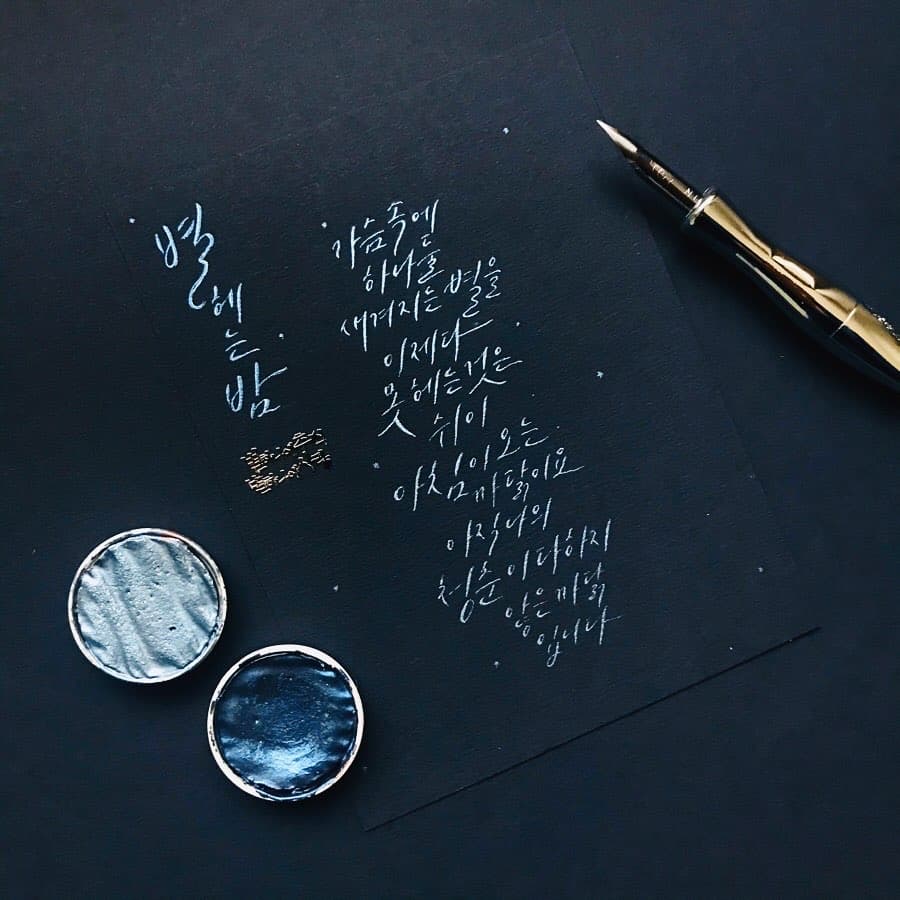 별
헤
는
밤
가슴속에
하나 둘
새겨지는 별을
이제 다
못 헤는 것은
쉬이
아침이 오는
까닭이요
아직 나의
청춘이 다하지
않은 까닭
입니다